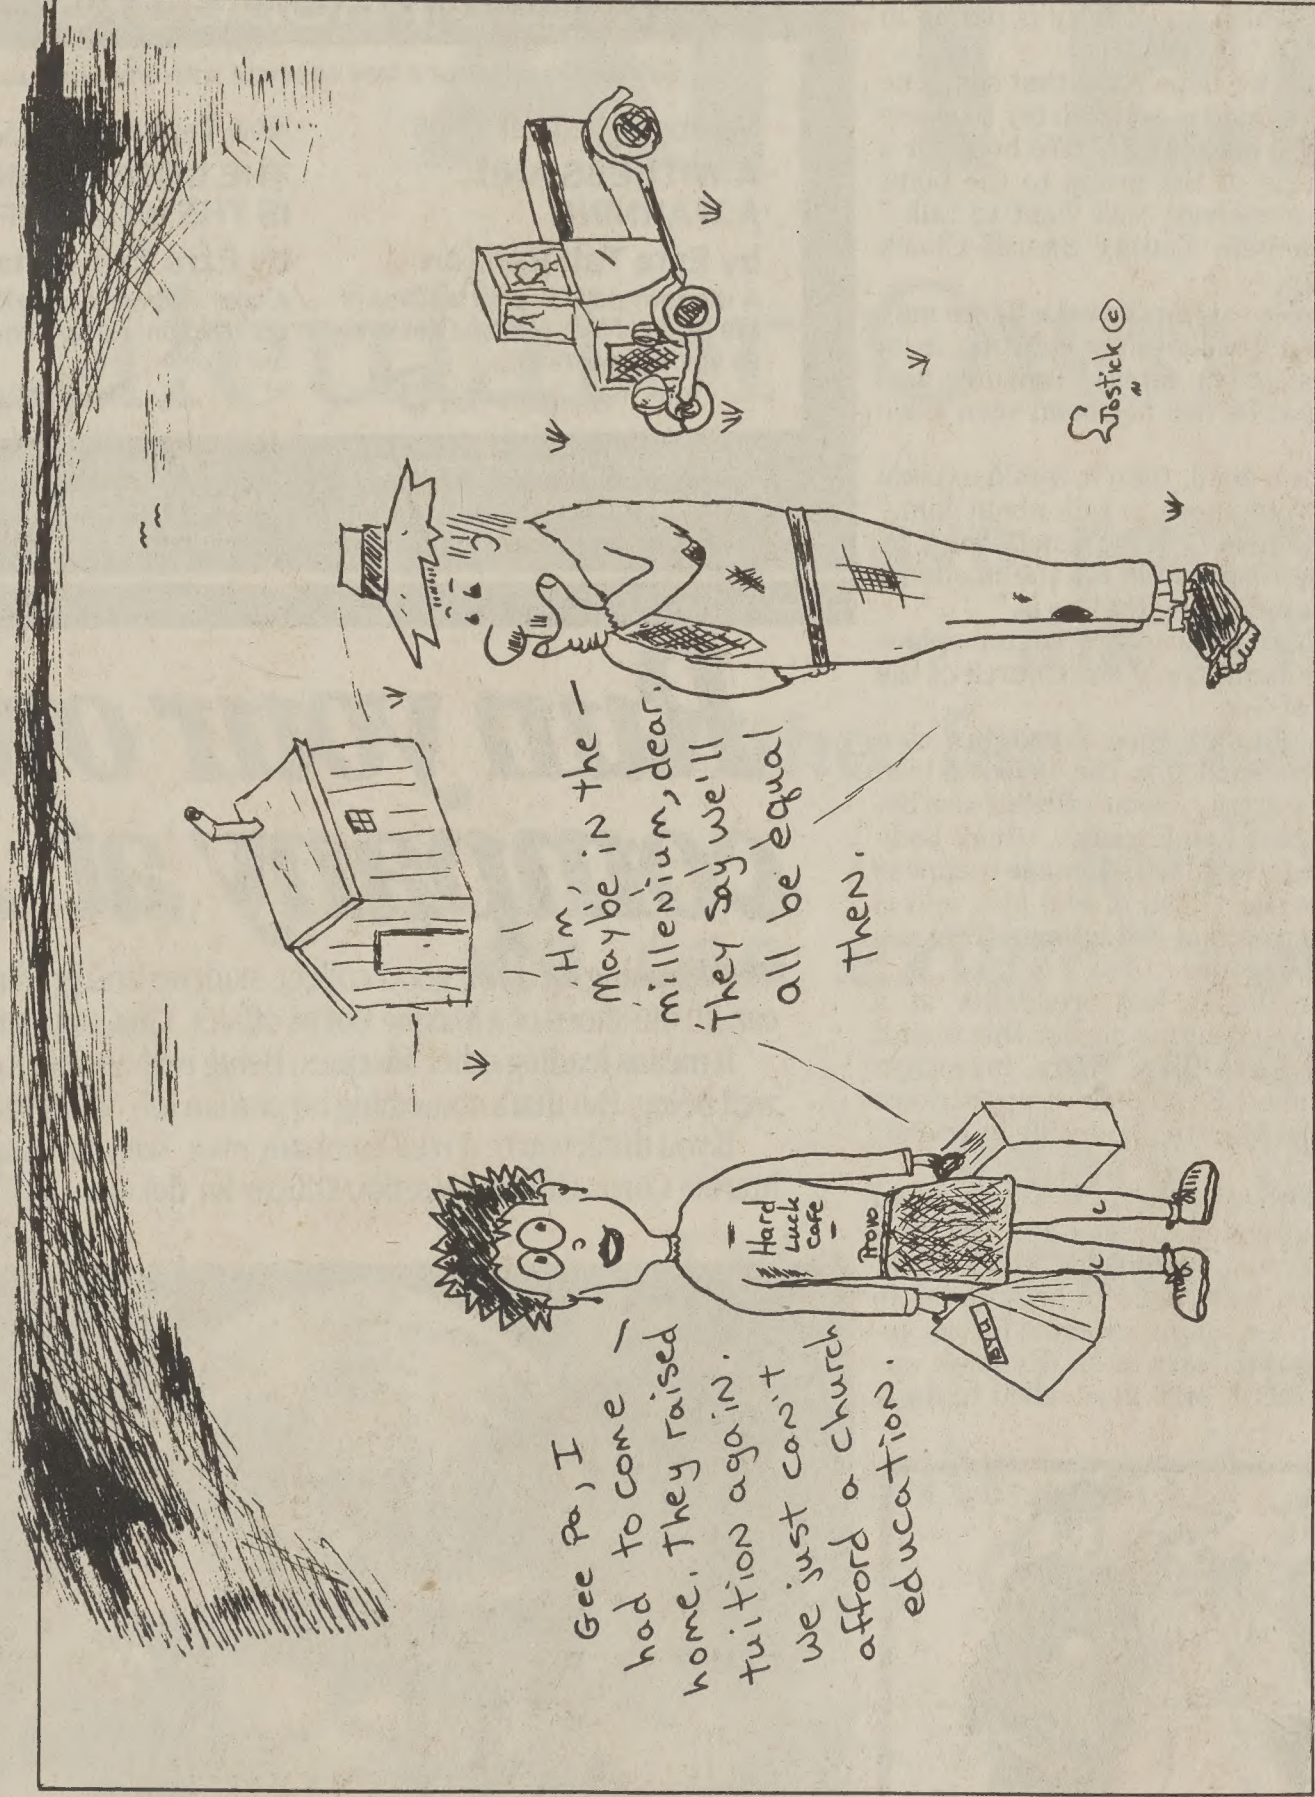 Gee Pa, I
had to come –
home. They raised
tuition again.
we just can't
afford a church
education.
Hm,
Maybe in the –
millenium, dear.
They say we'll
all be equal
then.
Hard
Luck
Cafe
Provo
BYU
Jostick ©